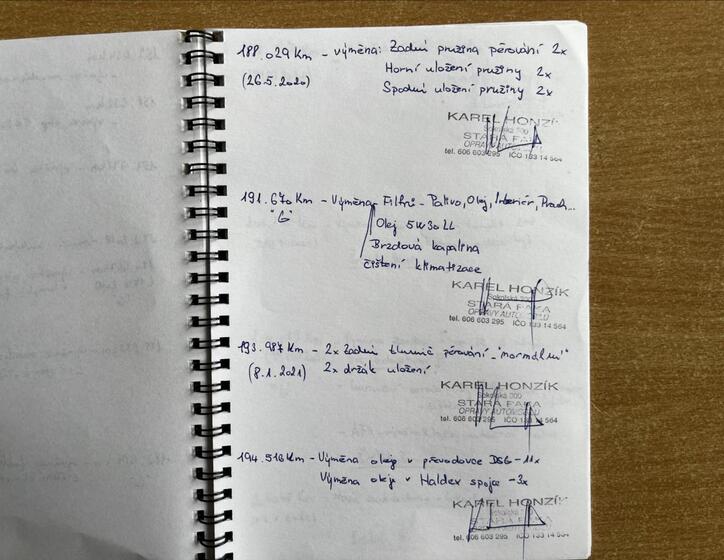 188.029 Km - výměna: Zadní pružina pérování 2x
(26.5.2020) Horní uložení pružiny 2x
Spodní uložení pružiny 2x
KAREL HONZÍK
Sokolská 300
STARÁ PAKA
OPRAVY AUTOMOBILŮ
tel. 606 603 295 IČO 133 14 564
191.670 Km - Výměna Filtrů - Palivo, Olej, Interiér, Prach...
"G" Olej 5W30 LL
Brzdová kapalina
čištění klimatizace
KAREL HONZÍK
Sokolská 300
STARÁ PAKA
OPRAVY AUTOMOBILŮ
tel. 606 603 295 IČO 133 14 564
193.987 Km - 2x Zadní tlumič pérování - "normální"
(8.1.2021) 2x držák uložení
KAREL HONZÍK
Sokolská 300
STARÁ PAKA
OPRAVY AUTOMOBILŮ
tel. 606 603 295 IČO 133 14 564
194.516 Km - Výměna oleje v převodovce DSG - 11x
Výměna oleje v Haldex spojce - 3x
KAREL HONZÍK
Sokolská 300
STARÁ PAKA
OPRAVY AUTOMOBILŮ
tel. 606 603 295 IČO 133 14 564